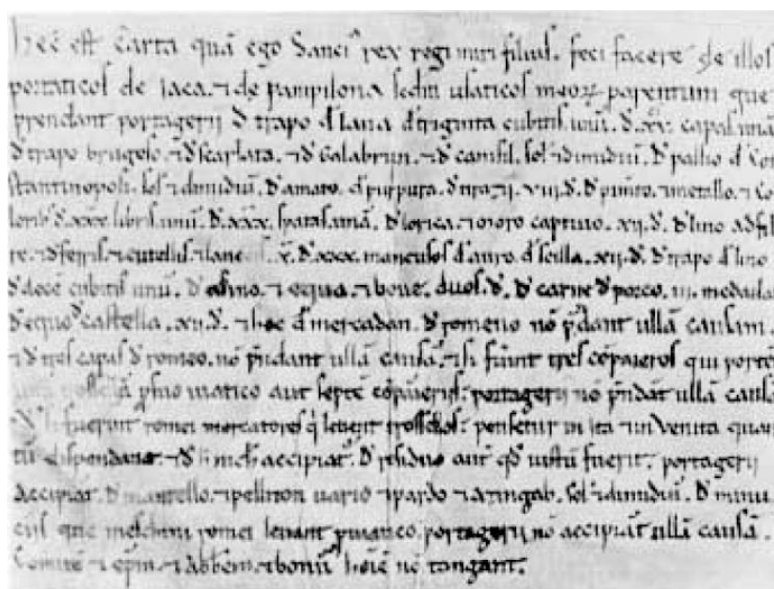 hec est carta quā ego Sanci' rex regimiri filius. feci facere de illos
portaticos de iaca. ⁊ de pampilona sedm̄ usaticos meoꝝ parentum que
prendant portagerii đ trapo đ lana đ triginta cubitis unū. đ capas unā
đ trapo brugeso. ⁊ đ scarlata. ⁊ đ Galabrun. ⁊ đ camsil. sol' ⁊ dimidiū. đ pallio đ Co
stantinopoli. sol' ⁊ dimidiū. đ purpura. viii. đ. đ pimēto. ⁊ metallo. ⁊ Co
lorib' đ. xxx. libris unū. đ xxx. spatas unā. đ lorica. ⁊ moro captivo. xii. đ. đ lino
⁊ đ ferris. ⁊ cutellis. ⁊ lanceis. đ xxx. mancusos đ auro. xii. đ. đ trapo đ lino
đ docē cubitis unū. đ asino. ⁊ equa. ⁊ bove. duos. đ. đ carne đ porco. iii. medaias
đ equo đ castella. xii. đ. ⁊ hoc đ mercadan. đ romeuo nō p̄dant ullā causam.
⁊ đ tres capas đ romeo. nō p̄ndant ullā causā. ⁊ si fuerint tres cōpaieros qui portē
p suo viatico aut septē cōpaieris. portagerii nō p̄ndāt ullā causā
đ si fuerint romei mercatores q̄ levent trossellos. pensetur in ita ⁊ in venita quan
tū dispendant. ⁊ đ accipiat. đ residuo aut qđ iustū fuerit. portagerii
accipiat. đ mantello. ⁊ pelliton vario ⁊ pardo ⁊ sol' ⁊ dimidiū. đ minu
ciis que meschini romei levant p viatico. portagerii nō accipiāt ullā causā.
Comitē ⁊ ep̄m. ⁊ abbem. ⁊ bonū hoīē nō tangant.